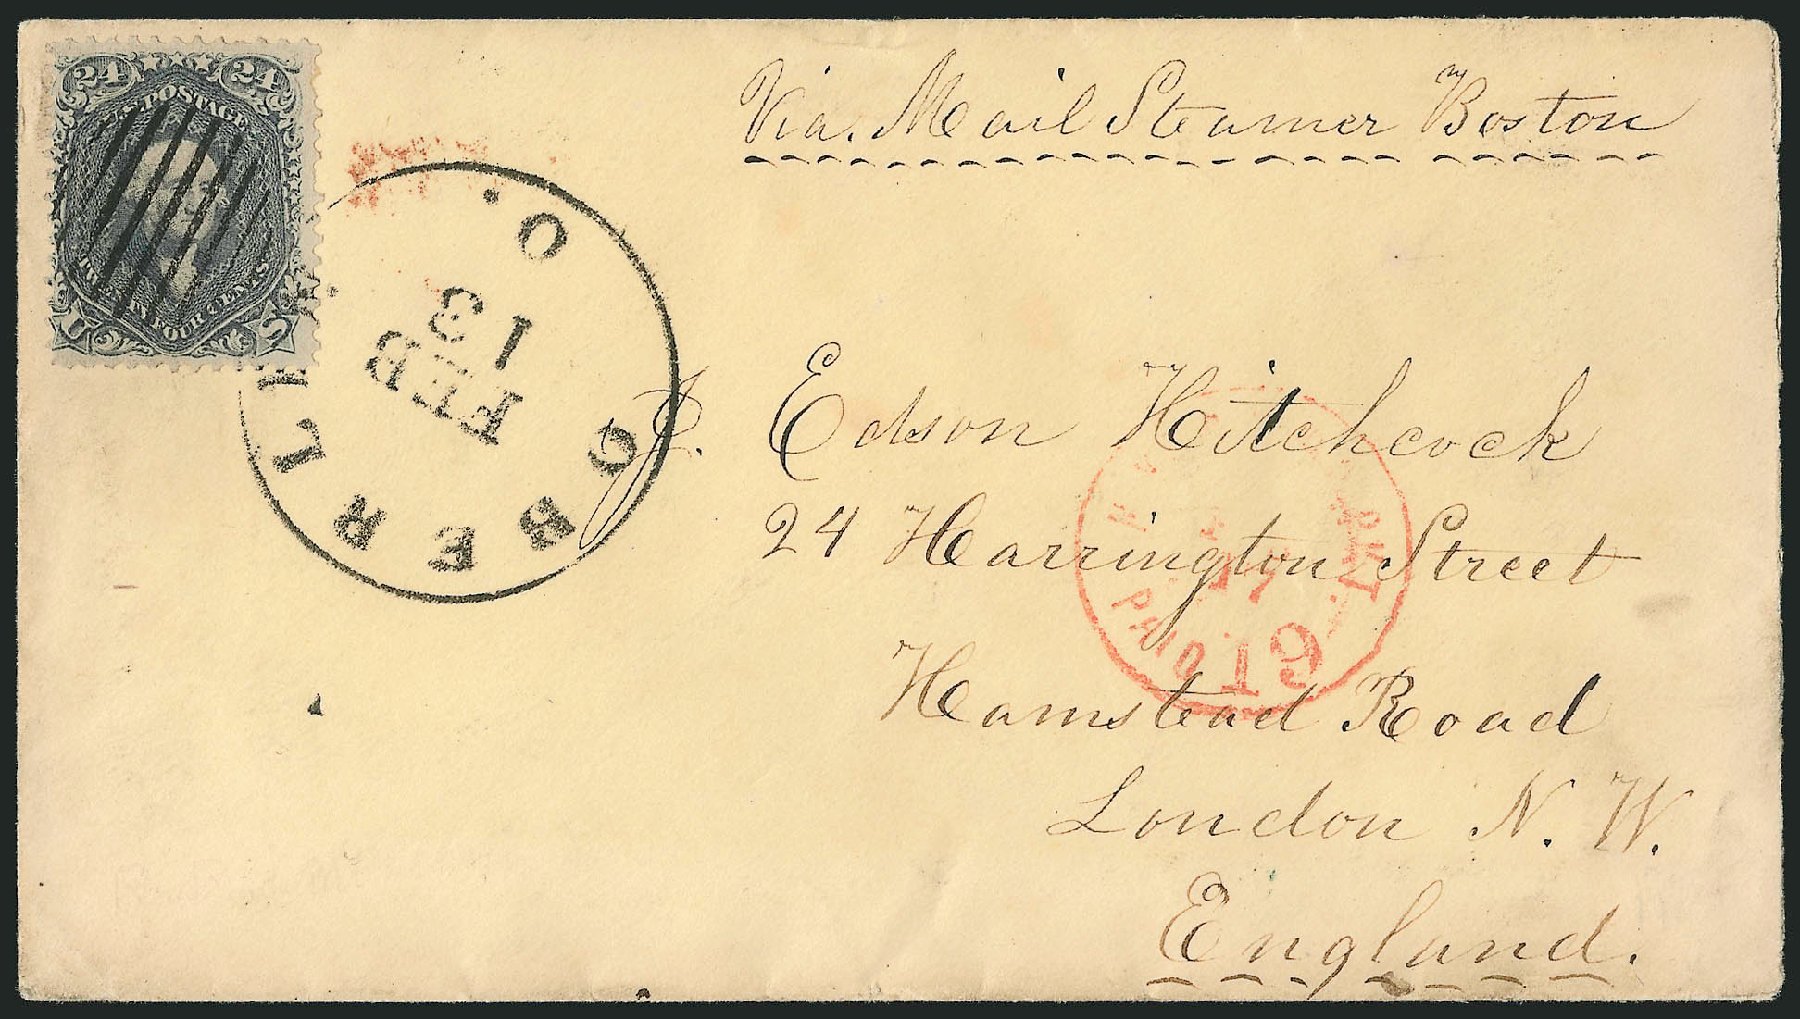 24 24
U.S. POSTAGE
TWENTY FOUR CENTS
U S
Via. Mail Steamer Boston
GBERLIN O.
FEB
13
J. Edson Hitchcock
24 Harrington Street
Hamstead Road
London N. W.
England.
PKT
17
PAID 19